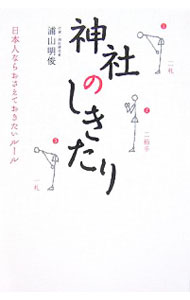 神社
の
しきたり
浦山明俊
日本人ならおさえておきたいルール
1
二礼
2
二拍手
3
一礼